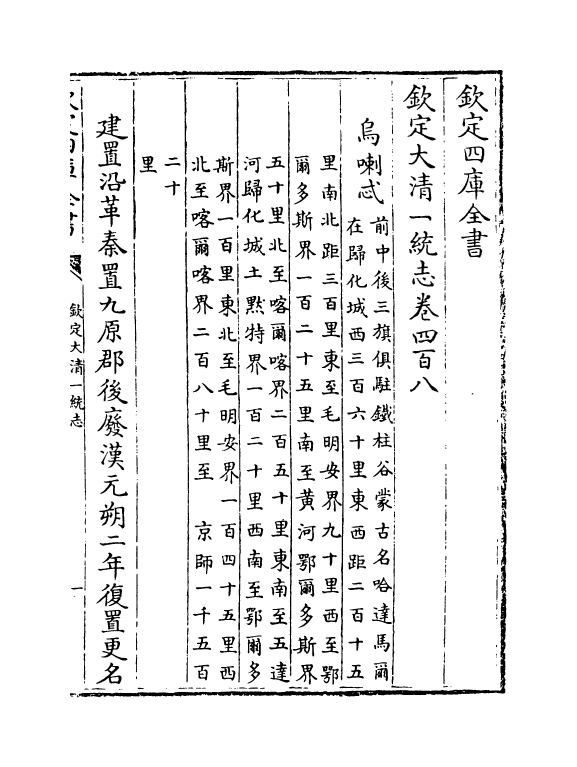 欽定四庫全書
欽定大清一統志卷四百八
烏喇忒
前中後三旗俱駐鐵柱谷蒙古名哈達馬爾
在歸化城西三百六十里東西距二百十五
里南北距三百里東至毛明安界九十里西至鄂
爾多斯界一百二十五里南至黃河鄂爾多斯界
五十里北至喀爾喀界二百五十里東南至五達
河歸化城土黙特界一百二十里西南至鄂爾多
斯界一百里東北至毛明安界一百四十五里西
北至喀爾喀界二百八十里至 京師一千五百
二十
里
建置沿革秦置九原郡後廢漢元朔二年復置更名
欽定四庫全書
欽定大清一統志
一